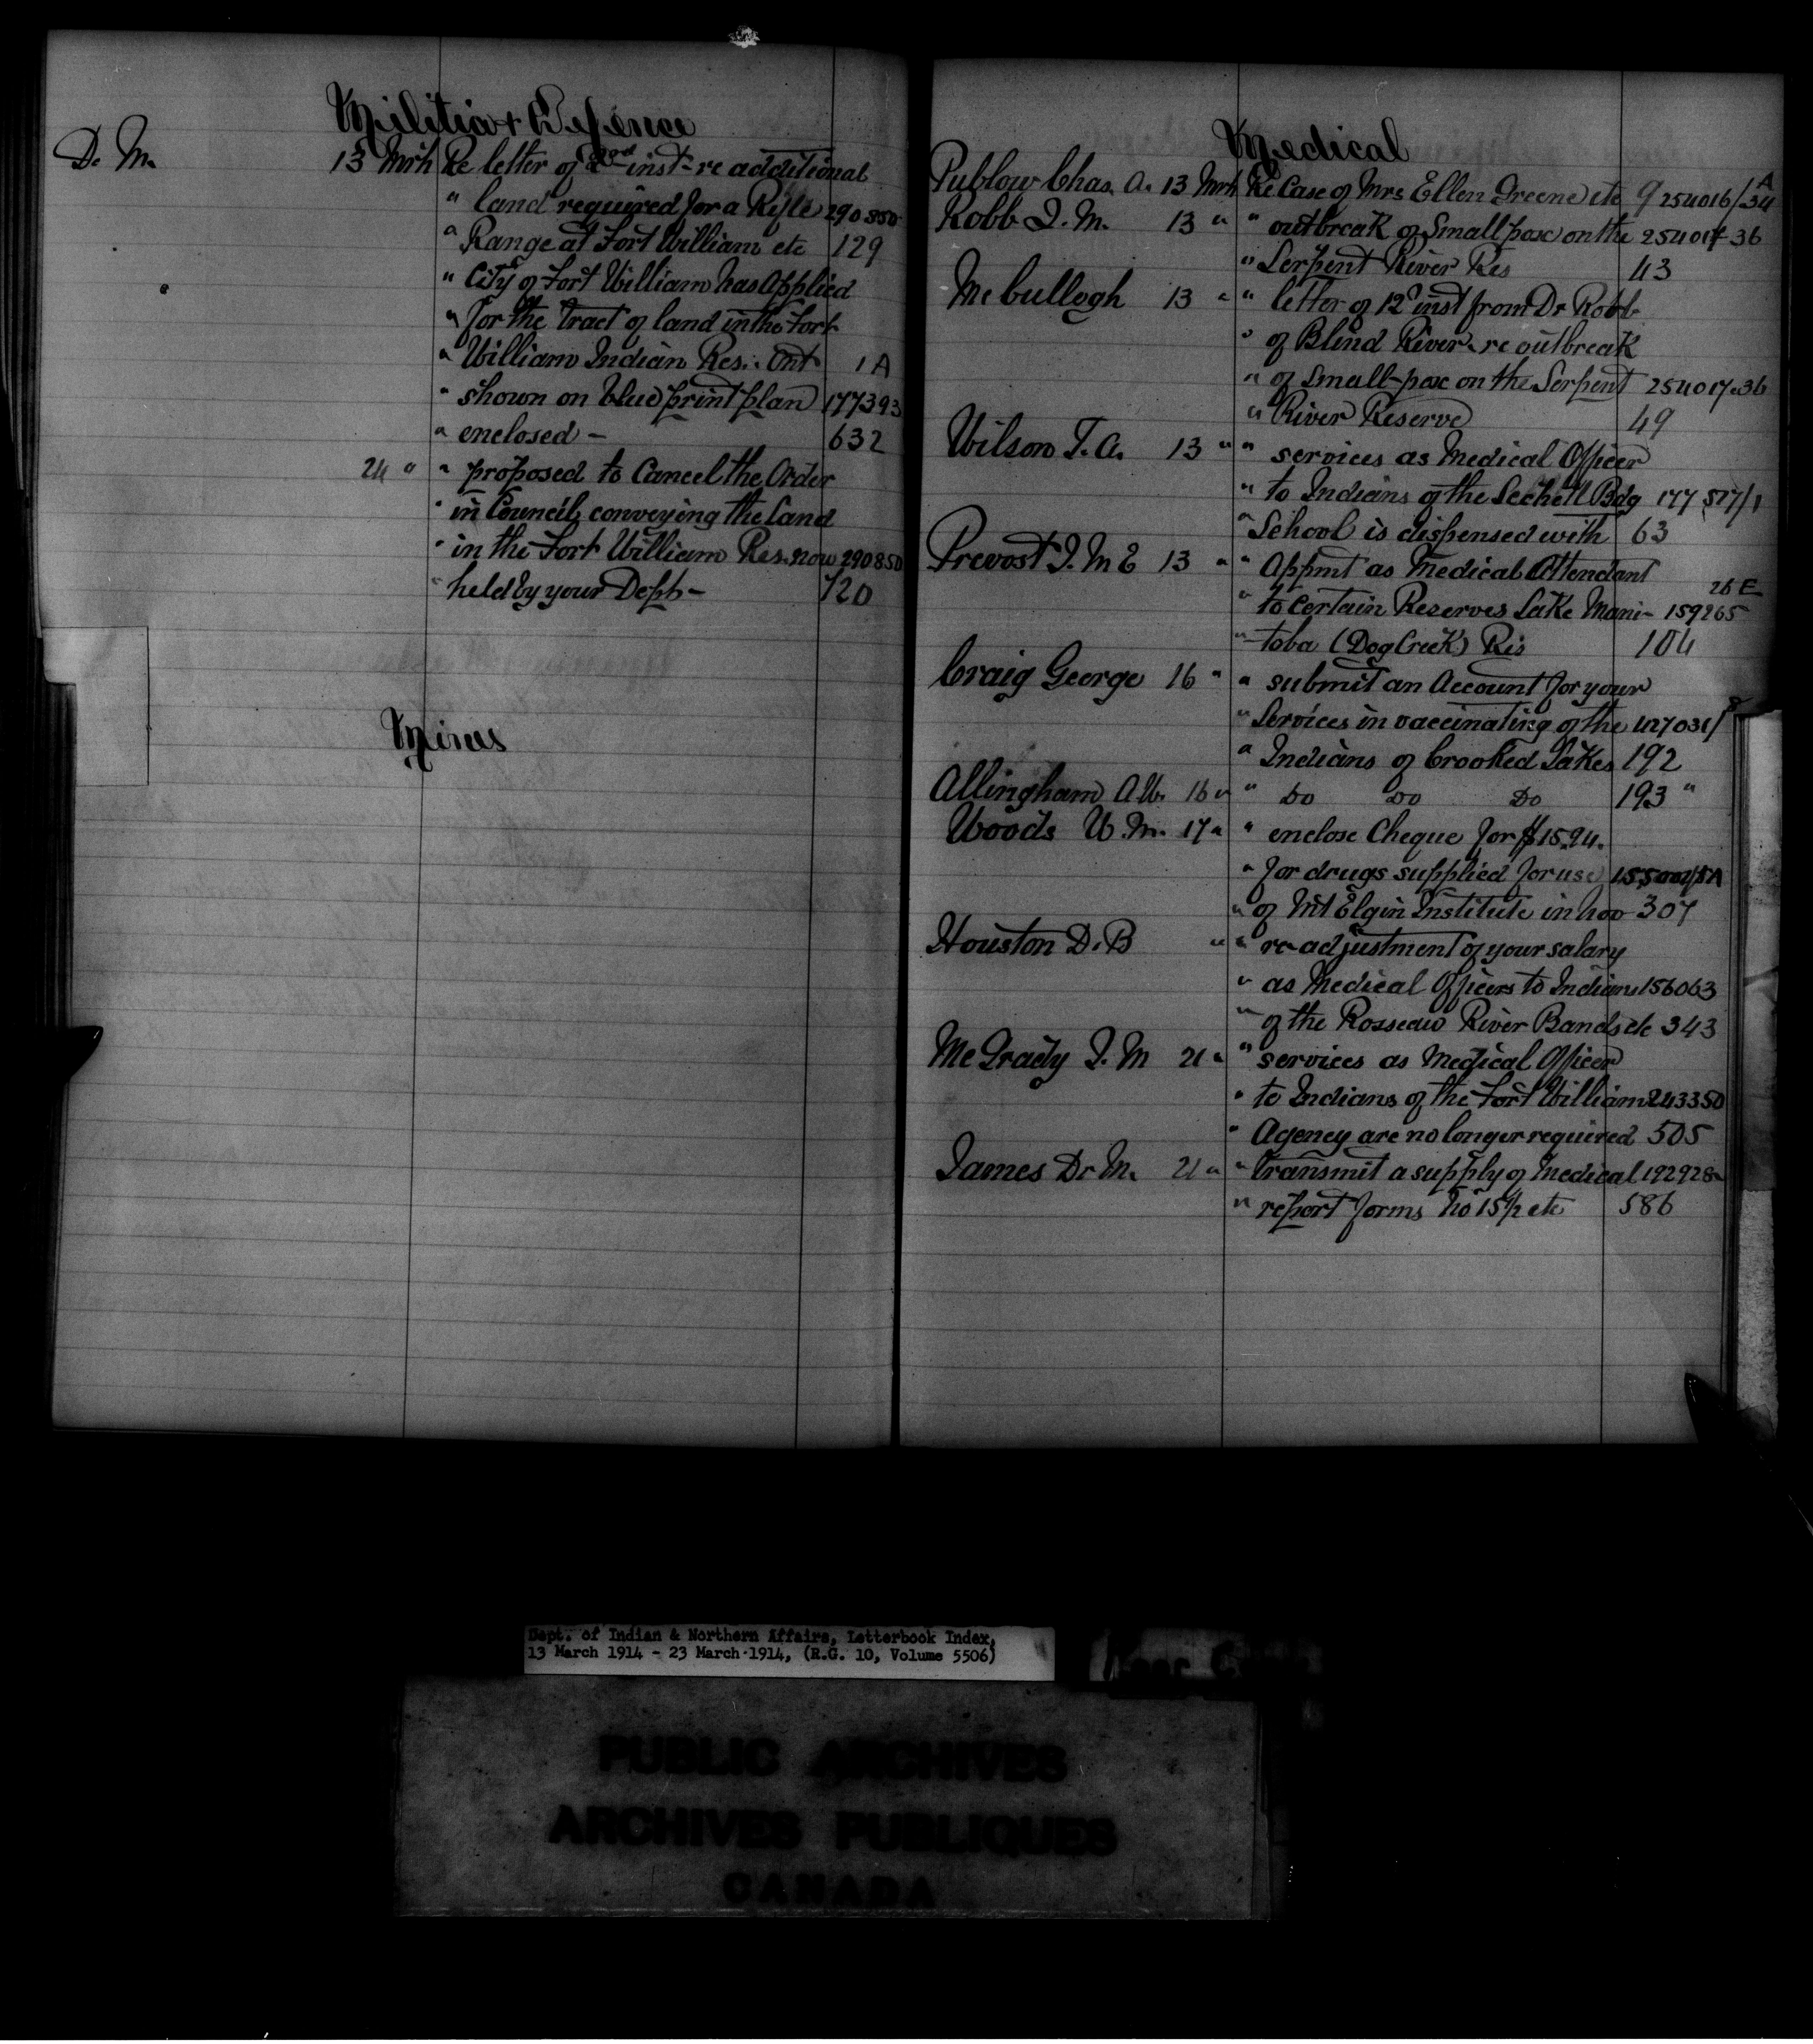 Militia & Defence
D. M. 13 Mrh Re letter of 2nd inst - re additional
" land required for a Rifle 290850
" Range at Fort William etc 129
" City of Fort William has applied
" for the tract of land in the Fort
" William Indian Res. Ont 1A
" shown on blue print plan 177393
" enclosed - 632
24 " " proposed to Cancel the Order
" in Council conveying the land
" in the Fort William Res. now 290850
" held by your Dept - 720
Mines
Medical
Publow Chas. A. 13 Mrh Re Case of Mrs Ellen Greene etc 9 254016/34 A
Robb J. M. 13 " " outbreak of Small pox on the 254017-36
" Serpent River Res 43
McCullogh 13 " " letter of 12 inst from Dr Robb
" of Blind River - re outbreak
" of Small-pox on the Serpent 254017-36
" River Reserve 49
Wilson T. A. 13 " " services as Medical Officer
" to Indians of the Sechelt Bdg 177517/1
" School is dispensed with 63
Prevost J. M E 13 " " Appmt as Medical Attendant
" to certain Reserves Lake Mani- 159265 26 E
" toba (Dog Creek) Res 104
Craig George 16 " " submit an Account for your
" Services in vaccinating of the 147031/
" Indians of Crooked Lakes 192
Allingham A W. 16 " " Do Do Do 193 "
Woods W. M. 17 " " enclose Cheque for $15.94.
" for drugs supplied for use 155001/5A
" of Mt Elgin Institute in Nov 307
Houston D. B " " re-adjustment of your salary
" as Medical Officers to Indians 156063
" of the Rosseau River Bands etc 343
McGrady J. M 21 " " services as Medical Officer
" to Indians of the Fort William 243350
" Agency are no longer required 505
James Dr M. 21 " " transmit a supply of Medical 192928
" report forms No 15½ etc 586
Dept. of Indian & Northern Affairs, Letterbook Index,
13 March 1914 - 23 March 1914, (R.G. 10, Volume 5506)
PUBLIC ARCHIVES
ARCHIVES PUBLIQUES
CANADA